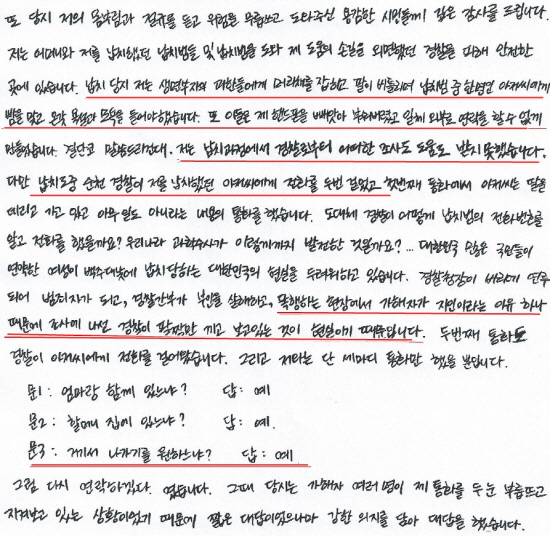 또 당시 저의 몸부림과 절규를 듣고 위험을 무릅쓰고 도와주신 용감한 시민들께 깊은 감사를 드립니다.
저는 어머니와 저를 납치했던 납치범들 및 납치범들 도와 제 도움의 손길을 외면했던 경찰을 피해 안전한
곳에 있습니다. 납치 당시 저는 생면부지의 괴한들에게 머리채를 잡히고 팔이 비틀리며 납치범 중 한명인 아저씨에게
뺨을 맞고 온갖 욕설과 모욕을 들어야 했습니다. 또 이들은 제 핸드폰을 빼앗아 부숴버렸고 일체 외부로 연락을 할 수 없게
만들었습니다. 결단코 말씀드리건대, 저는 납치과정에서 경찰로부터 어떠한 조사도 도움도 받지 못했습니다.
다만 납치도중 순천 경찰이 저를 납치했던 아저씨에게 전화를 두번 걸었고 첫번째 통화에서 아저씨는 딸을
데리고 가고 있고 아무 일도 아니라는 내용의 통화를 했습니다. 도대체 경찰이 어떻게 납치범의 전화번호를
알고 전화를 했을까요? 우리나라 과학수사가 이렇게까지 발전한 것일까요? ... 대한민국 많은 국민들이
연약한 여성이 백주대낮에 납치당하는 대한민국의 현실을 두려워하고 있습니다. 경찰청장이 비리가 연루
되어 범죄자가 되고, 경찰간부가 부인을 살해하고, 폭행하는 현장에서 가해자가 지인이라는 이유 하나
때문에 조사에 나선 경찰이 팔짱만 끼고 보고있는 것이 현실이기 때문입니다. 두번째 통화로
경찰이 아저씨에게 전화를 걸어왔습니다. 그리고 저와는 단 세마디 통화만 했을 뿐입니다.
문1 : 엄마랑 함께 있느냐? 답 : 예
문2 : 할머니 집에 있느냐? 답 : 예.
문3 : 거기서 나가기를 원하느냐? 답 : 예
그럼 다시 연락하겠다. 였습니다. 그때 당시는 가해자 여러명이 제 통화를 두 눈 부릅뜨고
지켜보고 있는 상황이었기 때문에 짧은 대답이었으나마 강한 의지를 담아 대답을 했습니다.